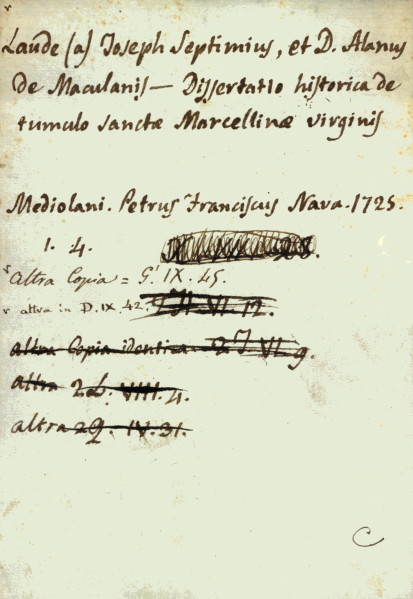 Laude (a) Joseph Septimius, et D. Alanus
de Maculanis — Dissertatio historica de
tumulo sanctæ Marcellinæ virginis
Mediolani. Petrus Franciscus Nava. 1725.
1. 4.
altra Copia = G. IX. 45.
altra in D. IX. 42. VI. 12.
altra Copia identica VI. 9.
altra VIII. 4.
altra IV. 31.
C